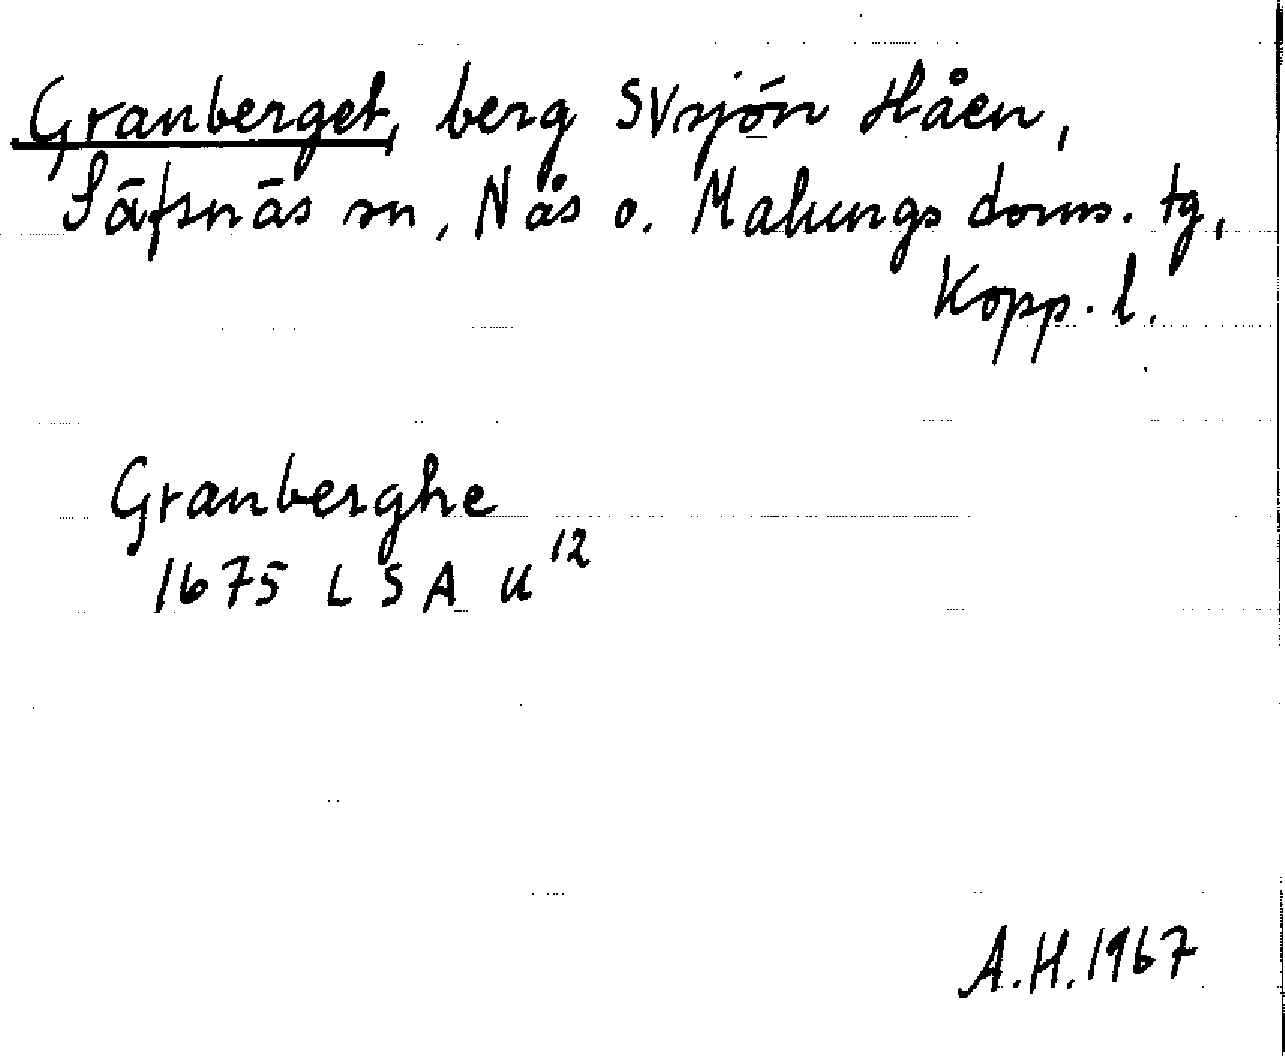 Granberget, berg SV sjön Håen,
Säfsnäs sn, Nås o. Malungs doms. tg,
Kopp. l.
Granberghe
1675 LSA U 12
A.H. 1967